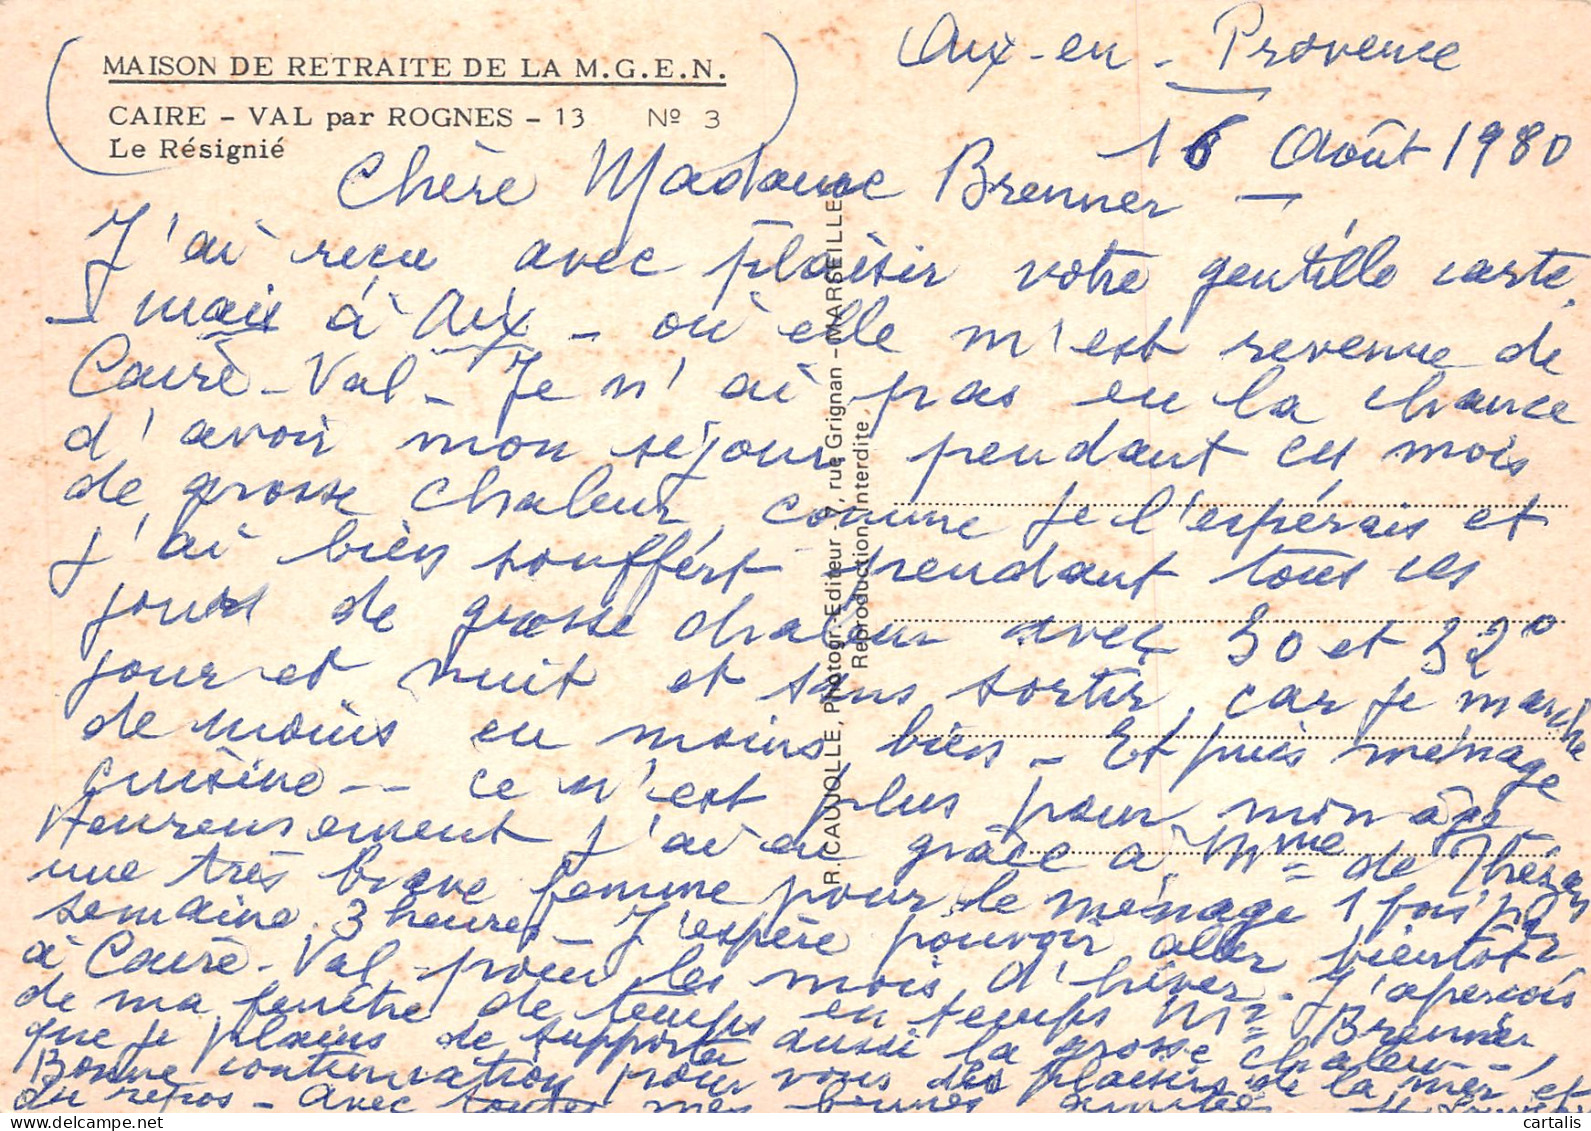 MAISON DE RETRAITE DE LA M.G.E.N.
CAIRE - VAL par ROGNES - 13 Nº 3
Le Résignié
Aix-en-Provence
16 Août 1980
Chère Madame Brenner -
J'ai reçu avec plaisir votre gentille carte,
- mais à Aix - où elle m'est revenue de
Caire-Val - Je n'ai pas eu la chance
d'avoir mon séjour pendant ces mois
de grosse chaleur, comme je l'espérais et
j'ai bien souffert pendant tous ces
jours de grosse chaleur avec 30 et 32°
jour et nuit et sans sortir, car je marche
de moins en moins bien - Et puis ménage
cuisine -- ce n'est plus pour mon âge
Heureusement j'ai eu grâce à Mme de
une très brave femme pour le ménage 1 fois par
semaine 3 heures - J'espère pouvoir aller bientôt
à Caire-Val - pour les mois d'hiver - J'aperçois
de ma fenêtre de temps en temps Mr Brenner,
que je plains de supporter aussi la grosse chaleur --,
Bonne continuation pour vous des plaisirs de la mer et
du repos - Avec toutes mes bonnes amitiés
R. CAUJOLLE, Photogr.-Editeur 7, rue Grignan - MARSEILLE
Reproduction Interdite.
cartalis